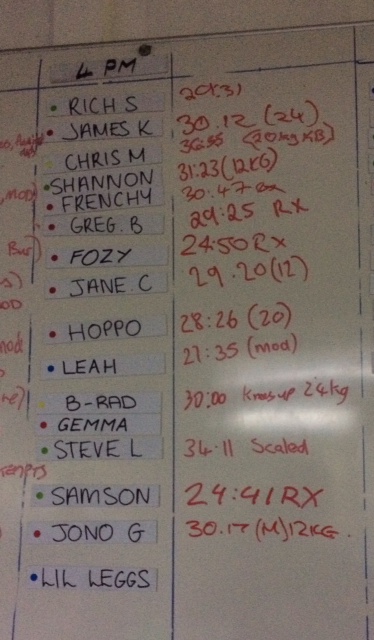 4 PM
RICH S
JAMES K 30.12 (24)
36:55 (20kg KB)
CHRIS M 31:23 (12KG)
SHANNON 30:47
FRENCHY 29:25 RX
GREG. B
FOZY 24:50 RX
JANE. C 29.20 (12)
HOPPO 28:26 (20)
LEAH 27:35 (mod)
B-RAD 30:00 24kg
GEMMA
STEVE L 34.11 Scaled
SAMSON 24:41 RX
JONO G 30.17 (M) 12KG.
LIL LEGGS